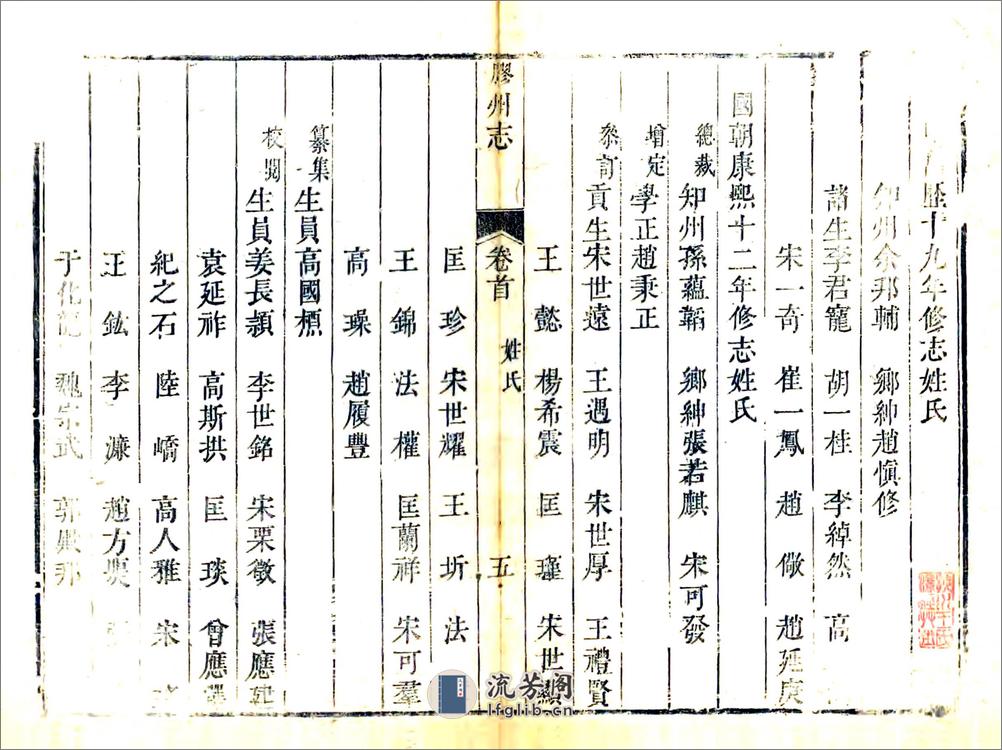 歷十九年修志姓氏
知州余邦輔　鄉紳趙愼修
諸生李君寵　胡一桂　李綽然　高
宋一奇　崔一鳳　趙　儆　趙延庚
國朝康熙十二年修志姓氏
總裁知州孫蘊韜　鄉紳張若麒　宋可發
增定學正趙秉正
叅訂貢生宋世遠　王遇明　宋世厚　王禮賢
王　懿　楊希震　匡　瑾　宋世顯
膠州志　卷首　姓氏　五
匡　珍　宋世耀　王　圻　法
王　錦　法　權　匡蘭祥　宋可羣
高　璪　趙履豐
纂集生員高國櫄
校閱生員姜長頴　李世銘　宋栗徵　張應
袁延祚　高斯拱　匡　琰　曾應
紀之石　陸　嶠　高人雅　宋
王　鈜　李　濂　趙方
于化龍　魏宗武　郭
流芳阁
lfglib.cn